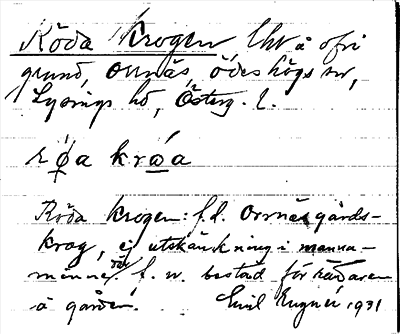 Röda krogen Lht å ofri
grund, Orrnäs, Ödeshögs sn,
Lysings hd, Österg. l.
rø̨a krώ̨a
Röda krogen: f.d. Orrnäs gårds-
krog, ej utskänkning i manna-
minne där f. n. bostad för
å gården.
Emil 1931